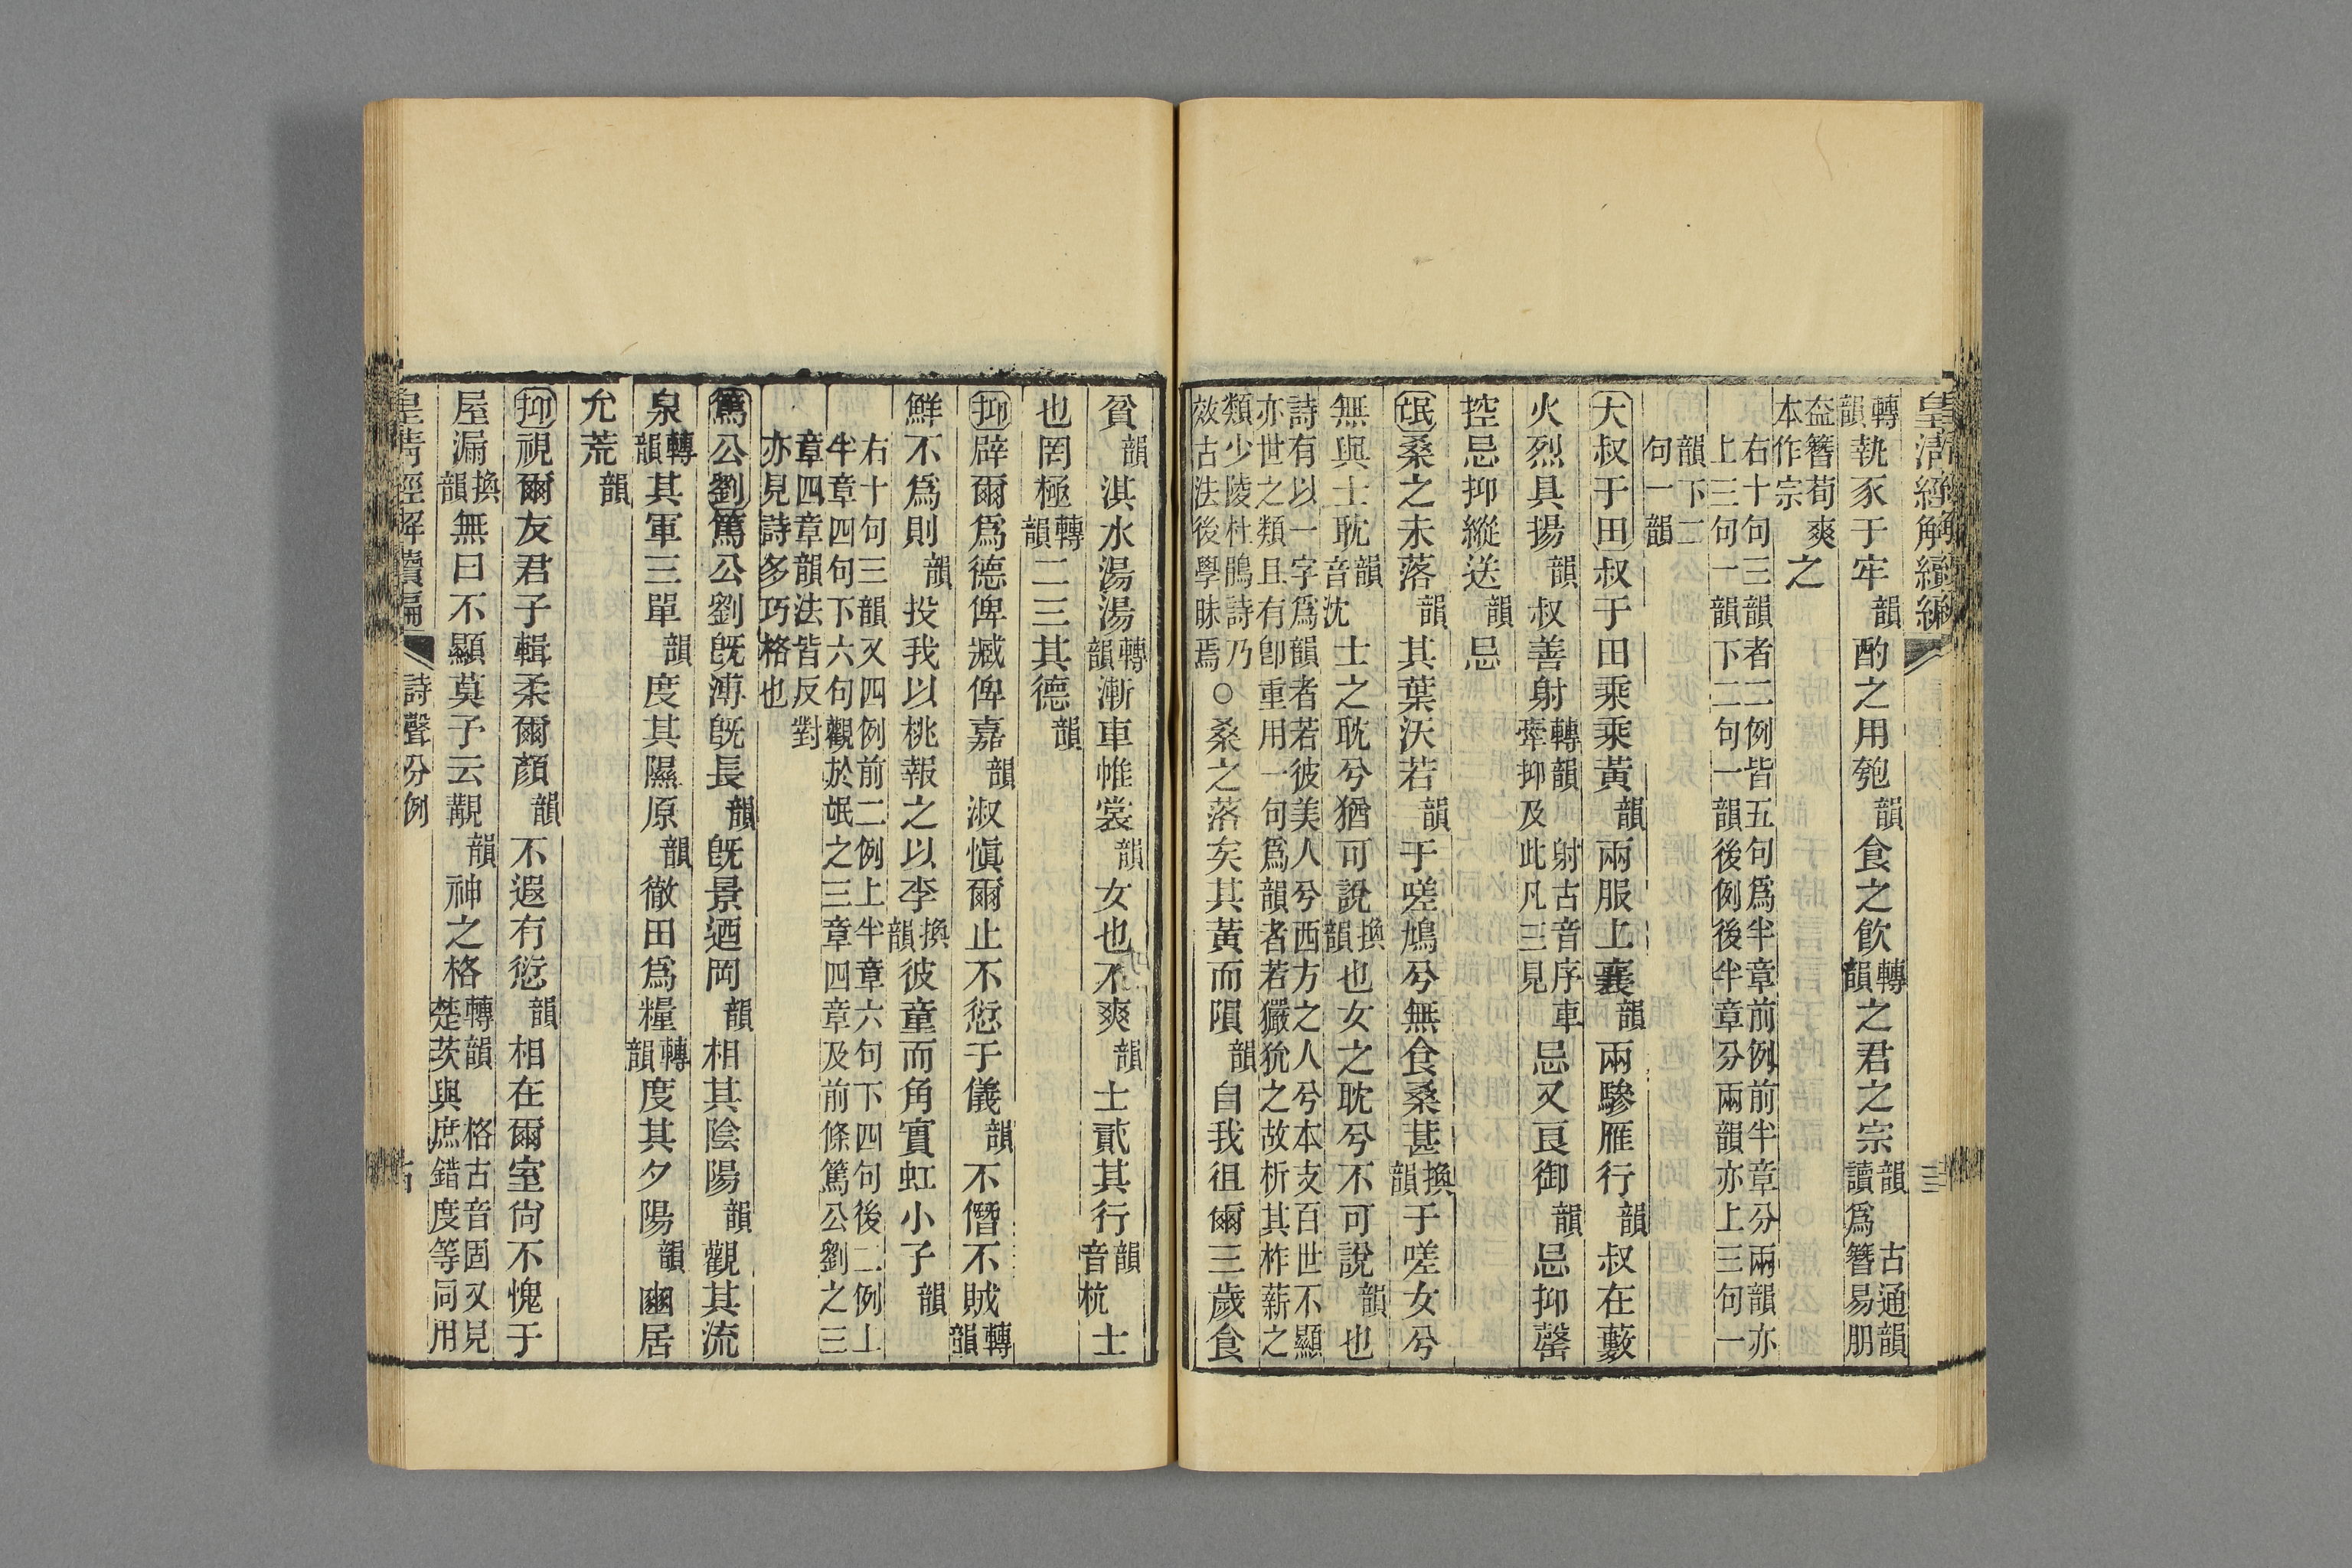 皇清經解續編 三
轉韻執豕于牢韻酌之用匏韻食之飲轉韻之君之宗韻古通韻讀爲簪易朋
盍簪荀爽本作宗之
右十句三韻者二例皆五句爲半章前例前半章分兩韻亦
上三句一韻下二句一韻後例後半章分兩韻亦上三句一
韻下二句一韻
大叔于田叔于田乘乘黃韻兩服上襄韻兩驂雁行韻叔在藪
火烈具揚韻叔善射轉韻射古音序車牽抑及此凡三見忌又良御韻忌抑罄
控忌抑縱送韻忌
氓桑之未落韻其葉沃若韻于嗟鳩兮無食桑葚換韻于嗟女兮
無與士耽韻音沈士之耽兮猶可說換韻也女之耽兮不可說韻也
詩有以一字爲韻者若彼美人兮西方之人兮本支百世不顯
亦世之類且有卽重用一句爲韻者若玁狁之故析其柞薪之
類少陵杜鵑詩乃效古法後學昧焉○桑之落矣其黃而隕韻自我徂爾三歲食
貧韻淇水湯湯轉韻漸車帷裳韻女也不爽韻士貳其行韻音杭士
也罔極轉韻二三其德韻
抑辟爾爲德俾臧俾嘉韻淑愼爾止不愆于儀韻不僭不賊轉韻
鮮不爲則韻投我以桃報之以李換韻彼童而角實虹小子韻
右十句三韻又四例前二例上半章六句下四句後二例上
半章四句下六句觀於氓之三章四章及前條篤公劉之三
章四章韻法皆反對
亦見詩多巧格也
篤公劉篤公劉旣溥旣長韻旣景迺岡韻相其陰陽韻觀其流
泉轉韻其軍三單韻度其隰原韻徹田爲糧轉韻度其夕陽韻豳居
允荒韻
抑視爾友君子輯柔爾顏韻不遐有愆韻相在爾室尙不愧于
屋漏換韻無曰不顯莫予云覯韻神之格轉韻格古音固又見楚茨與庶錯度等同用
皇清經解續編 詩聲分例 古